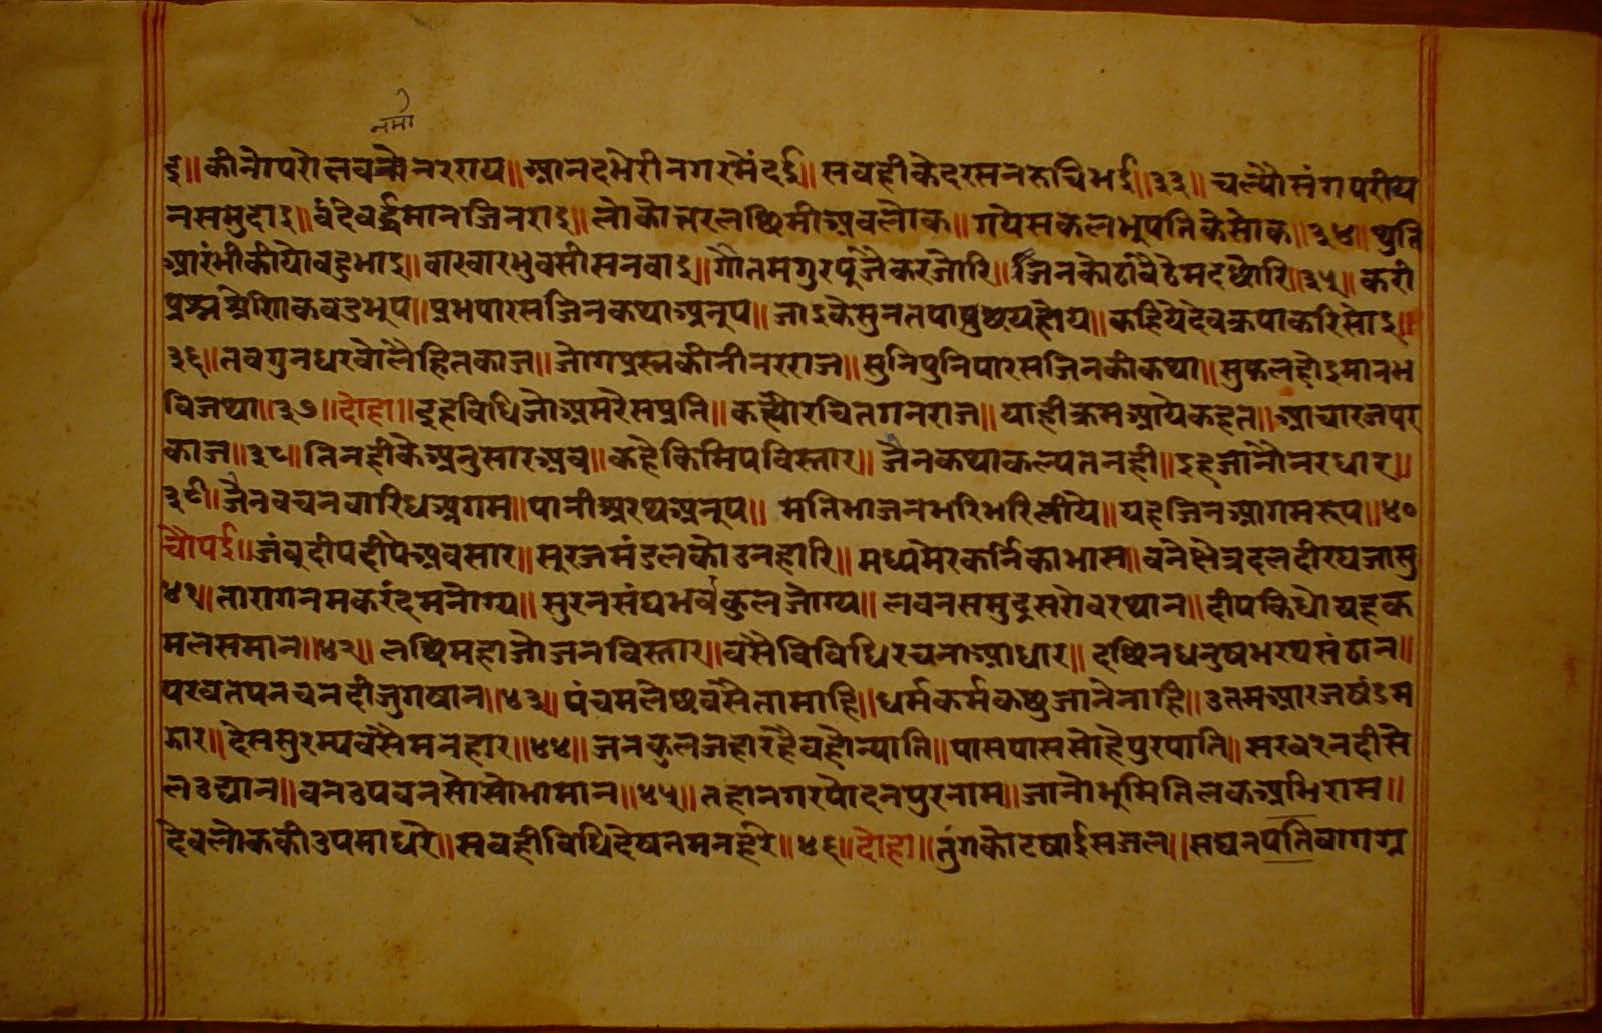 नमो
इ॥ कीनो परोल वनमै नरराय॥ आनदभेरी नगरमें दई॥ सबहीके दरसन रुचि भई॥३३॥ चल्यौ संग परीय
न समुदाइ॥ वंदे वर्द्धमान जिनराइ॥ लोकोत्तर लछिमी अवलोक॥ गये सकल भूपतिके सोक॥३४॥ थुति
आरंभी कीयौ बहु भाइ॥ बारबार भुव सीस नवाइ॥ गौतम गुर पुजै कर जोरि॥ जिनकोठा बैठे मद छोरि॥३५॥ करी
प्रश्न श्रेणिक वड भुप॥ प्रभ पारस जिन कथा अनुप॥ जाइके सुनत पाप छय होय॥ कहिये देव क्रपा करि सोइ॥
३६॥ तव गुनधर बोलै हित काज॥ जोग प्रस्न कीनी नरराज॥ सुनि पुनि पारस जिनकी कथा॥ सुफल होइ मानभ
वि जथा॥३७॥ दोहा॥ इह विधि जो अमरेस प्रति॥ कह्यौ रचित गनराज॥ याही क्रम आये कहत॥ आचारज पर
काज॥३८॥ तिनहीके अनुसार अब॥ कहै किमिप विस्तार॥ जैन कथा कल्पत नही॥ इह जानौ नर धार॥
३९॥ जैन वचन वारिध अगम॥ पानी अरथ अनुप॥ मति भाजन भरि भरि लीयै॥ यह जिन आगम रूप॥४०
चौपई॥ जंबुदीप दीपै अवसार॥ सुरजमंडलको उनहारि॥ मध्य मेर कर्निका भास॥ वने छेत्र दल दीरघ जासु
४१॥ तारागन मकरंद मनोग्य॥ सुर नर संघ भवकुल जोग्य॥ लवनसमुद्र सरोवर थान॥ दीप किधौ यह क
मल समान॥४२॥ लछि महा जोजन विस्तार॥ वसै विविधि रचना आधार॥ दछिन धनुष भरथ संठान॥
परवत पनच नदी जुग वान॥४३॥ पंच मलेछ वसै ता माहि॥ धर्म कर्म कछु जाने नाहि॥ उतम आरज षंड म
झार॥ देस सुरम्य वसै मनहार॥४४॥ जनकुल जहा रहै वहो न्याति॥ पास पास सोहै पुर पाति॥ सरवर नदी सै
ल उद्यान॥ वन उपवन सो सोभामान॥४५॥ तहा नगर पोदनपुर नाम॥ जानो भुमि तिलक अभिराम॥
देवलोककी उपमा धरै॥ सबही विधि देषत मन हरै॥४६॥ दोहा॥ तुंग कोट षाई सजल॥ सघन पति वाग ग्र